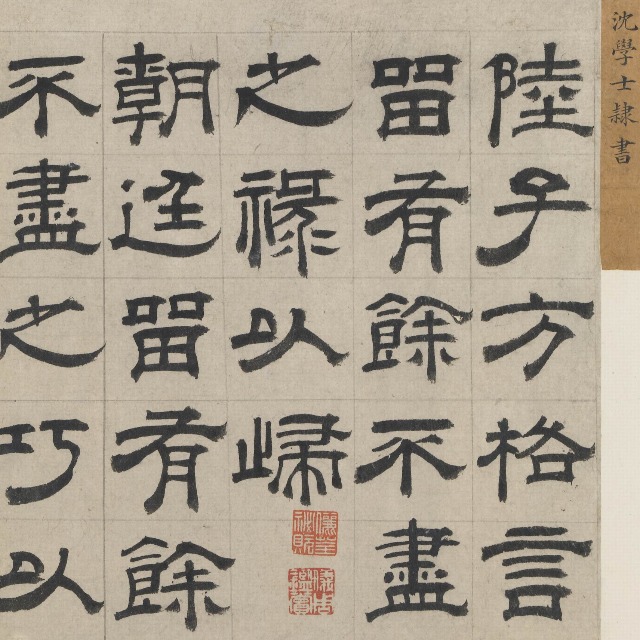 沈學士隸書
陸子方格言
㽞有餘不盡
之祿以㱕
朝廷㽞有餘
不盡之巧以